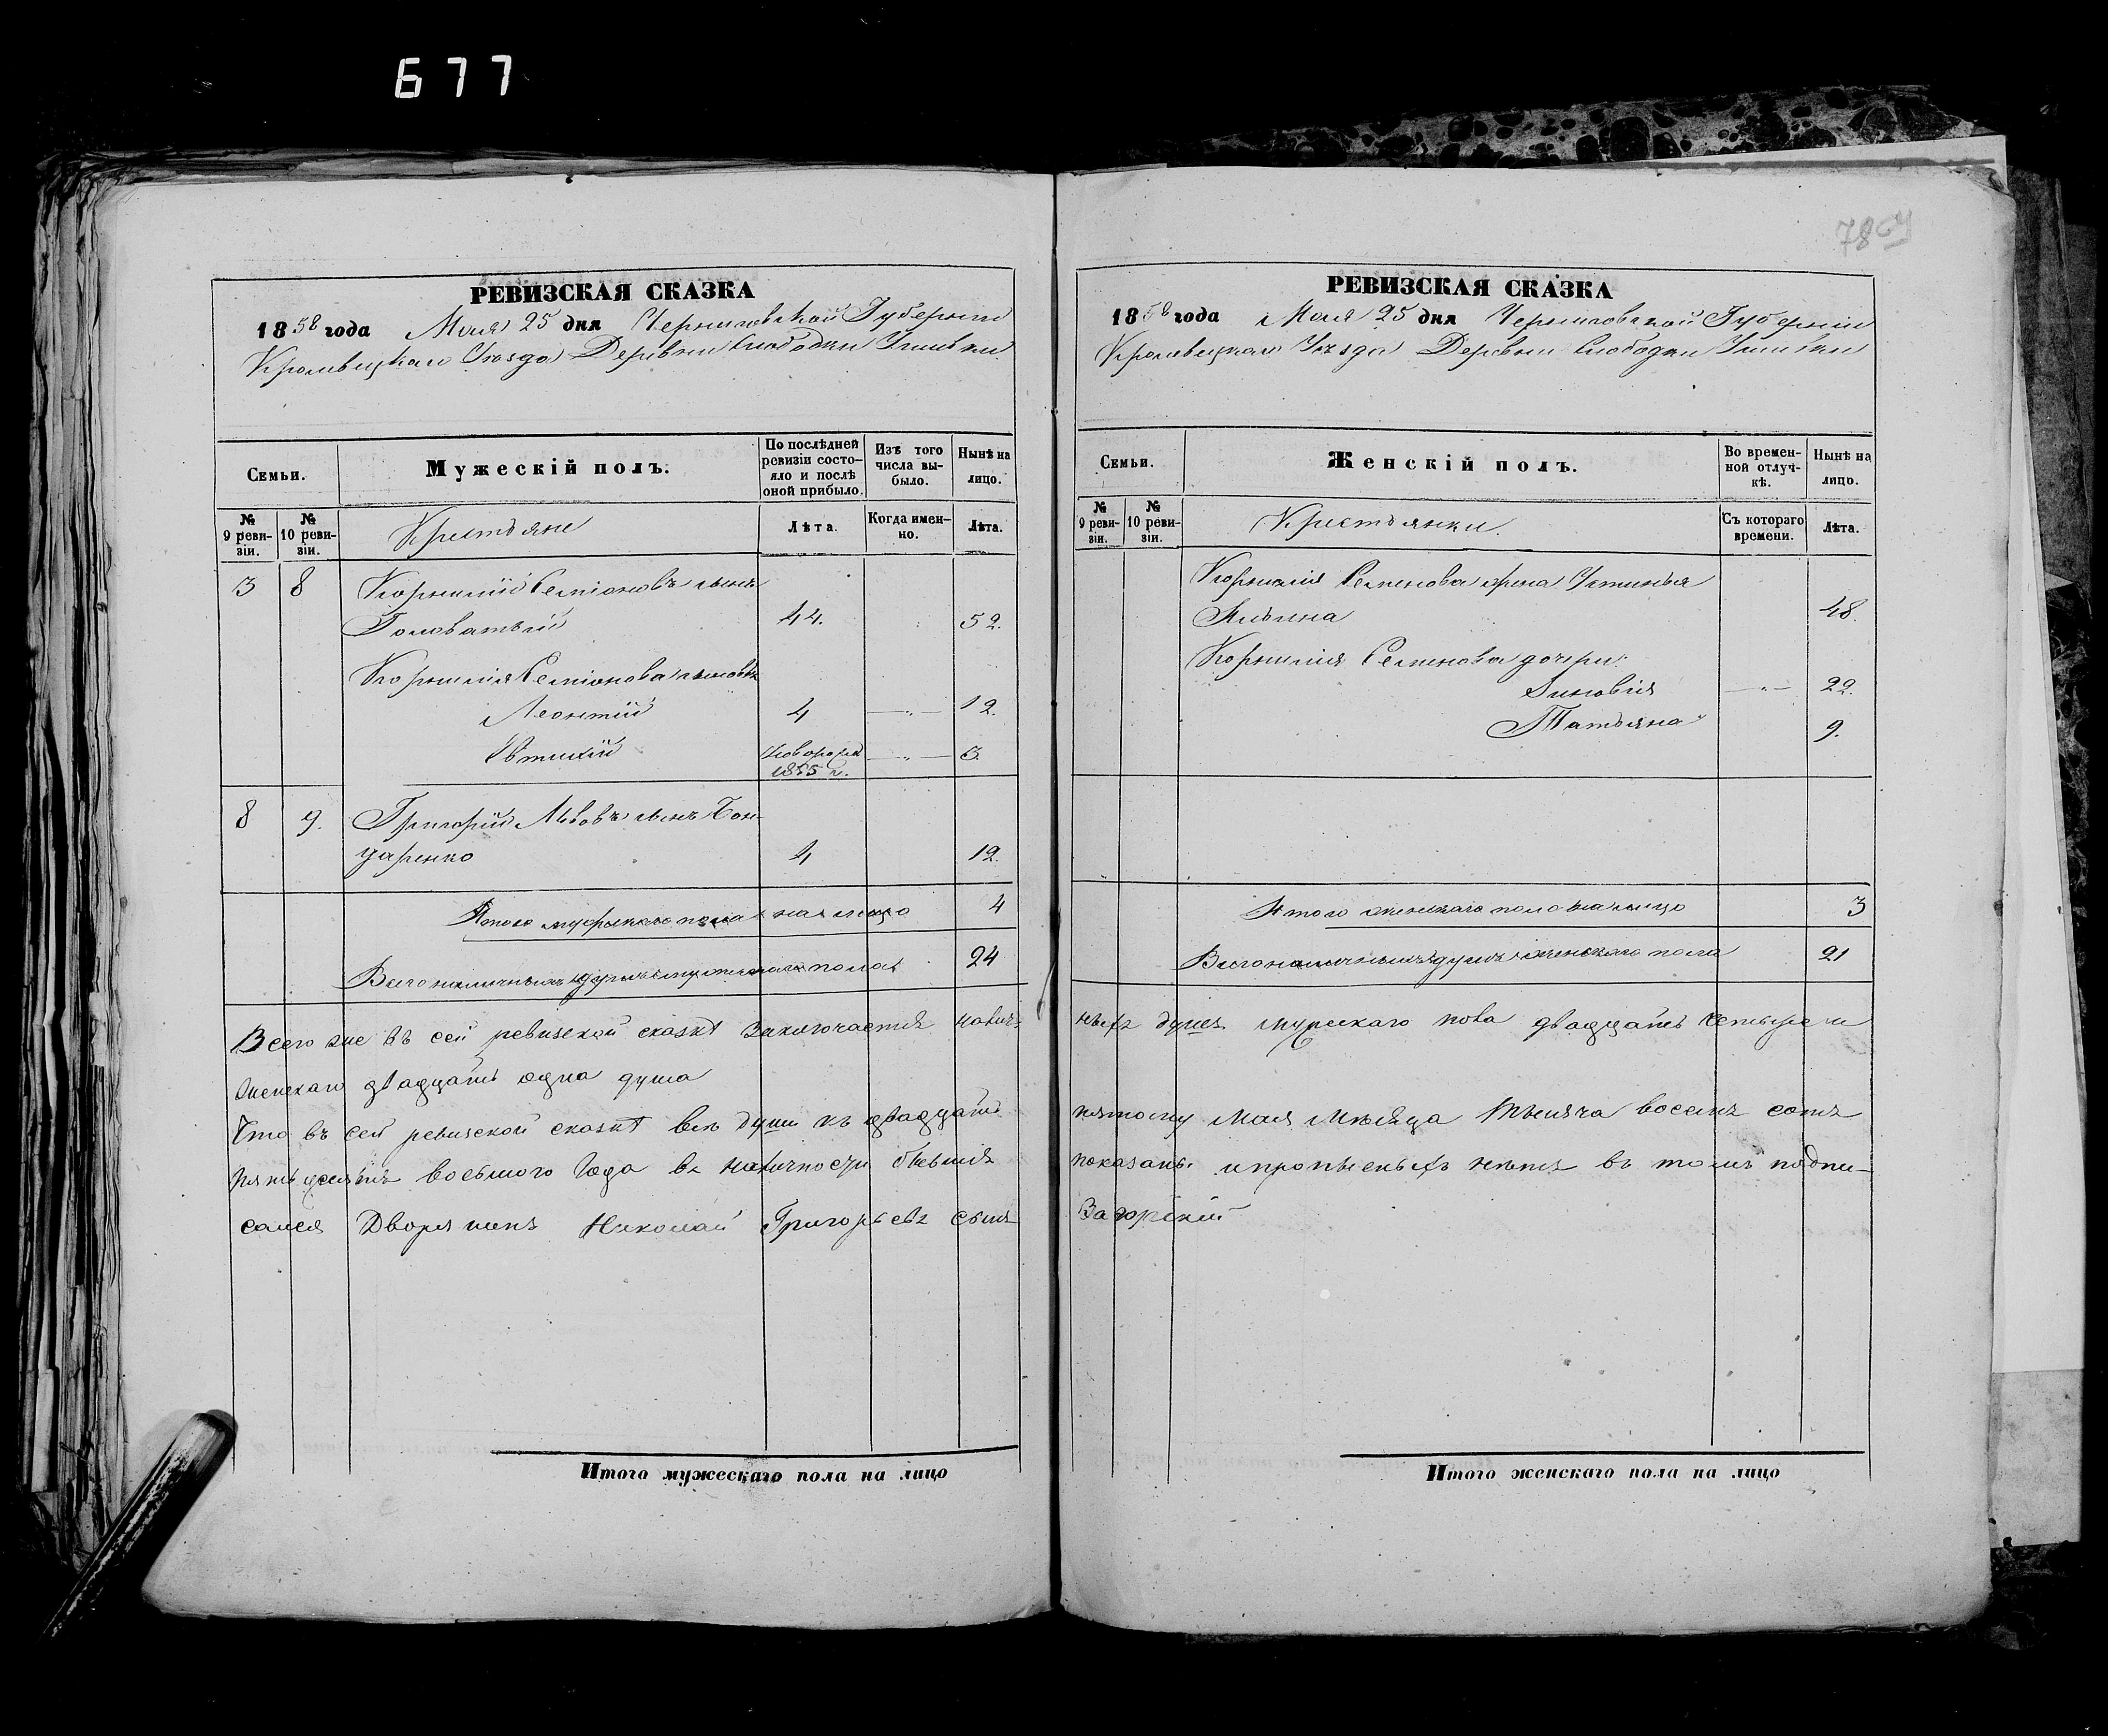 677
7864
РЕВИЗСКАЯ СКАЗКА
1858 года Мая 25 дня Черниговской Губернии
Кролевецкаго Уезда Деревни Слободки
Семьи.
Мужескій полъ.
По послѣдней ревизіи состояло и послѣ оной прибыло.
Изъ того числа выбыло.
Нынѣ на лицо.
№ 9 ревизіи.
№ 10 ревизіи.
Крестьяне
Лѣта.
Когда именно.
Лѣта.
3 8 Корнилій Семіоновъ сынъ
Головатый 44. 52.
Корнилія Семіонова сыновья
Леонтій 4 —〃— 12.
Евтихій Новорожд 1855 г. —〃— 3.
8 9. Григорій Львовъ сынъ Бон-
даренко 4 12.
Итого мужескаго пола на лицо 4
Всего наличныхъ душъ мужескаго пола 24
Всего же въ сей ревизской сказкѣ заключается налич-
женскаго двадцать одна душа
Что въ сей ревизской сказкѣ все души къ двадцать
пятьдесятъ восьмого Года въ наличности бывшія
сался Дворянинъ Николай Григорьевъ сынъ
Итого мужескаго пола на лицо
РЕВИЗСКАЯ СКАЗКА
1858 года Мая 25 дня Черниговской Губерніи
Кролевецкаго Уѣзда Деревни Слободки
Семьи.
Женскій полъ.
Во временной отлучкѣ.
Нынѣ на лицо.
№ 9 ревизіи.
№ 10 ревизіи.
Крестьянки.
Съ котораго времени.
Лѣта.
Корнилія Семенова жена Устинья
48.
Корнилія Семенова дочери:
Зиновія —〃— 22.
Татьяна 9.
Итого женскаго пола на лицо 3
Всего наличныхъ душъ женскаго пола 21
ныхъ душъ мужскаго пола двадцать четыре и
пятому Мая Мѣсяца Тысяча восемъ сотъ
показаны и прописныхъ нѣтъ въ томъ подпи-
Загорскій
Итого женскаго пола на лицо